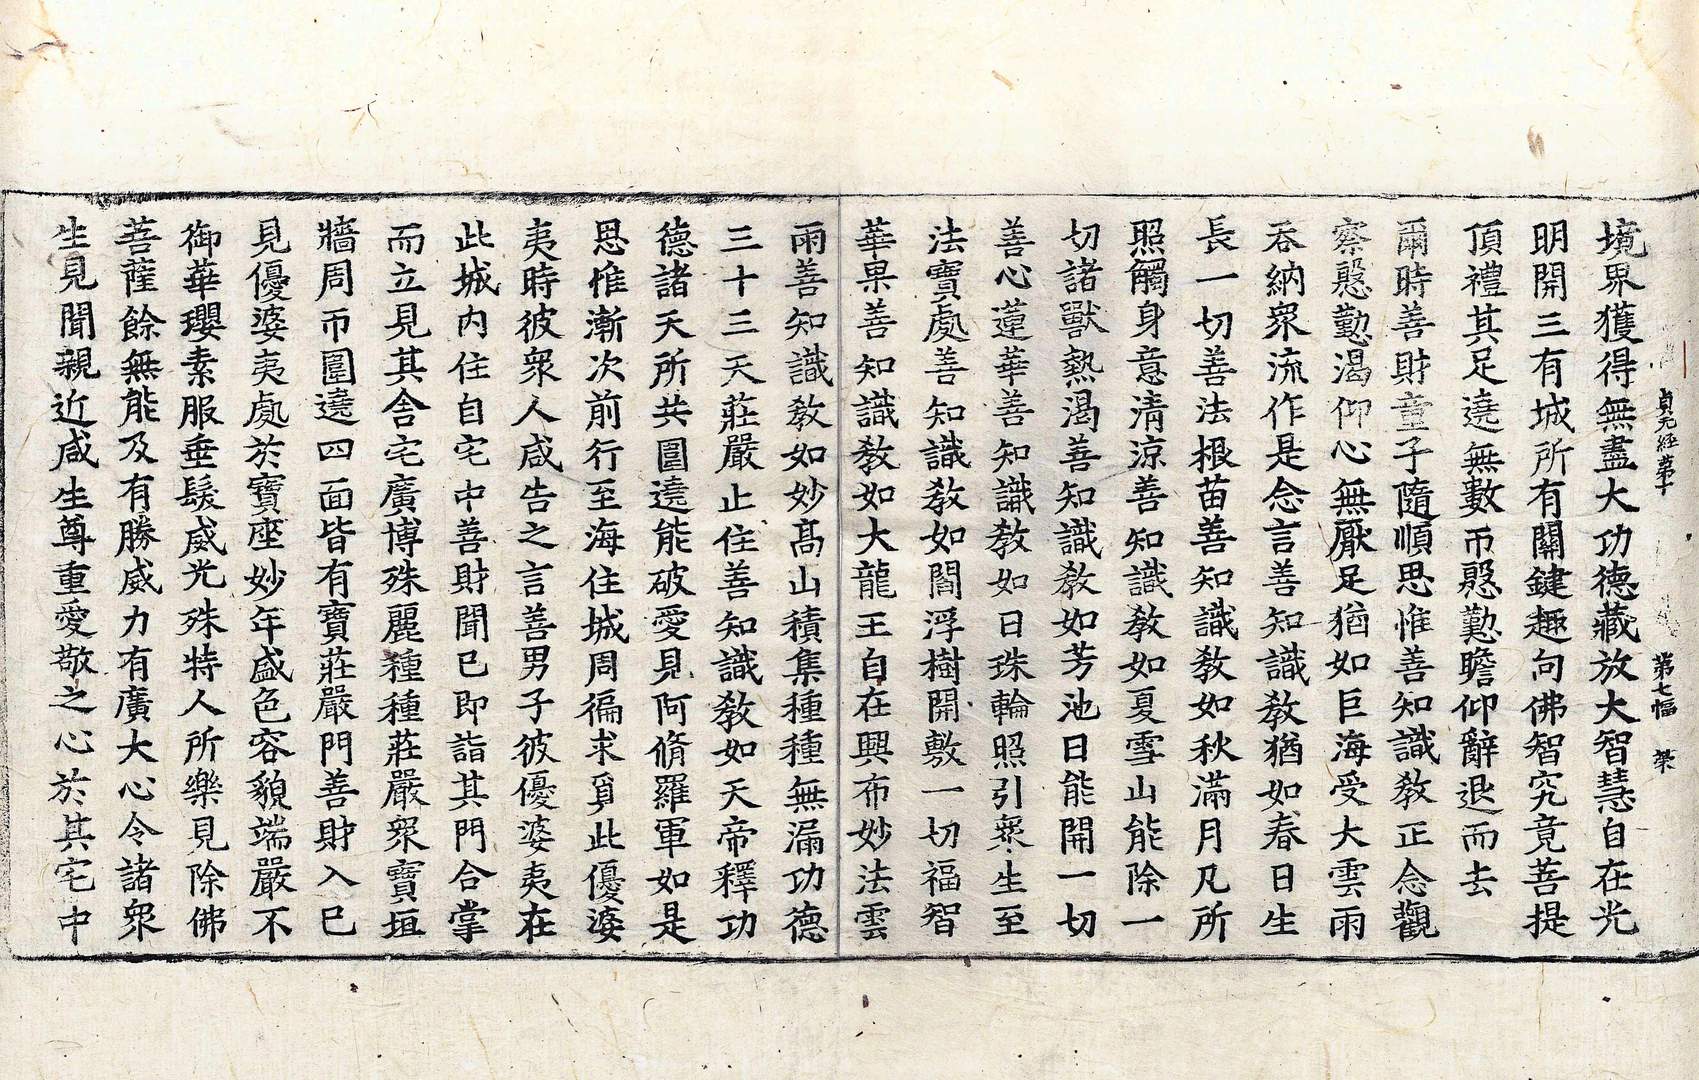 境界獲得無盡大功德藏放大智慧自在光
明開三有城所有關鍵趣向佛智究竟菩提
頂禮其足遶無數帀慇懃瞻仰辭退而去
爾時善財童子隨順思惟善知識教正念觀
察慇懃渴仰心無厭足猶如巨海受大雲雨
吞納衆流作是念言善知識教猶如春日生
長一切善法根苗善知識教如秋滿月凡所
照觸身意清涼善知識教如夏雪山能除一
切諸獸熱渴善知識教如芳池日能開一切
善心蓮華善知識教如日珠輪照引衆生至
法寶處善知識教如閻浮樹開敷一切福智
華果善知識教如大龍王自在興布妙法雲
雨善知識教如妙髙山積集種種無漏功德
三十三天莊嚴止住善知識教如天帝釋功
德諸天所共圍遶能破愛見阿脩羅軍如是
思惟漸次前行至海住城周徧求覓此優婆
夷時彼衆人咸告之言善男子彼優婆夷在
此城內住自宅中善財聞已即詣其門合掌
而立見其舍宅廣博殊麗種種莊嚴衆寶垣
牆周帀圍遶四面皆有寶莊嚴門善財入已
見優婆夷處於寶座妙年盛色容貌端嚴不
御華瓔素服垂髮威光殊特人所樂見除佛
菩薩餘無能及有勝威力有廣大心令諸衆
生見聞親近咸生尊重愛敬之心於其宅中
貞元經第十 第七幅 榮